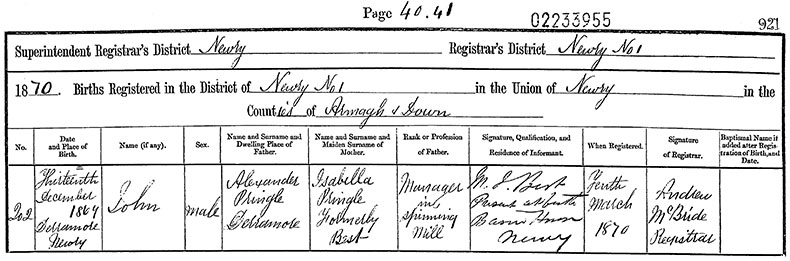 Page 40.41 02233955 921
Superintendent Registrar's District Newry Registrar's District Newry No 1
1870. Births Registered in the District of Newry No 1 in the Union of Newry in the
Counties of Armagh & Down
No. Date and Place of Birth. Name (if any). Sex. Name and Surname and Dwelling Place of Father. Name and Surname and Maiden Surname of Mother. Rank or Profession of Father. Signature, Qualification, and Residence of Informant. When Registered. Signature of Registrar. Baptismal Name if added after Registration of Birth, and Date.
202 Thirteenth December 1869 Derramore Newry John male Alexander Pringle Derramore Isabella Pringle Formerly Best Manager in spinning Mill M. J. Best Present at birth Newry Tenth March 1870 Andrew McBride Registrar